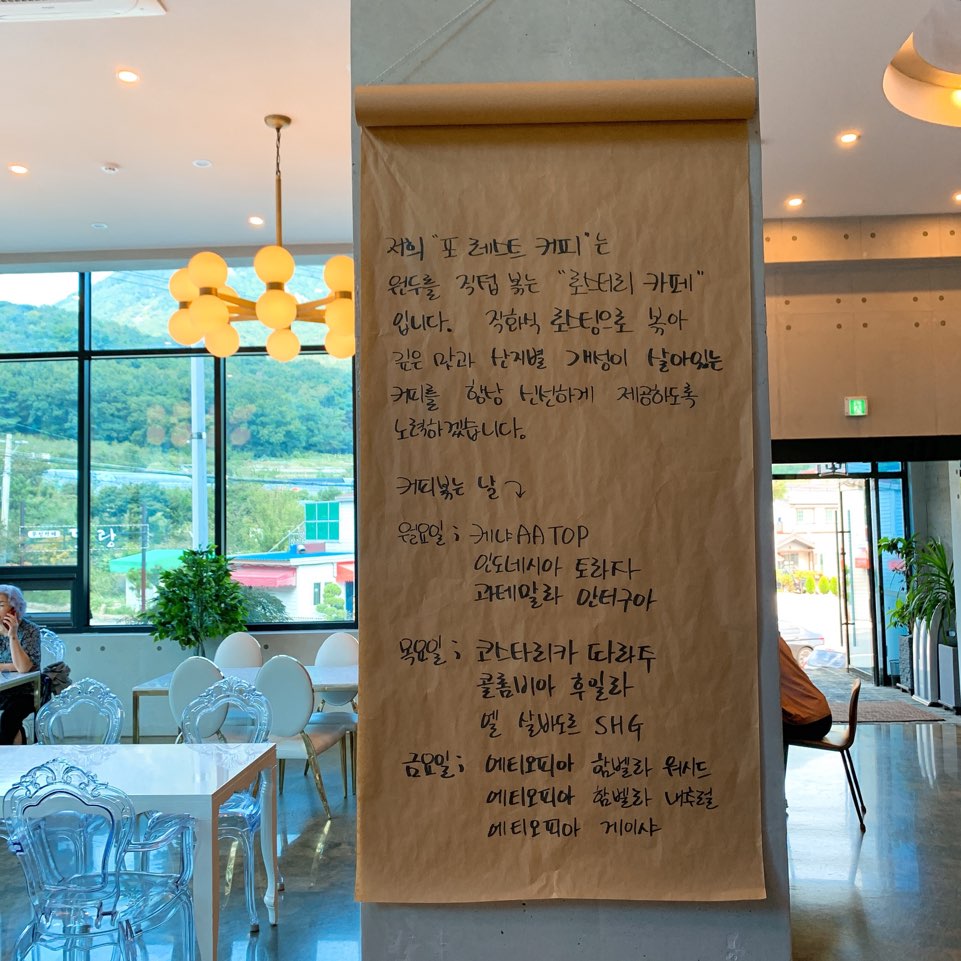 저희 "포 레스트 커피"는
원두를 직접 볶는 "로스터리 카페"
입니다. 직화식 로스팅으로 볶아
깊은 맛과 산지별 개성이 살아있는
커피를 항상 신선하게 제공하도록
노력하겠습니다.
커피볶는 날
월요일; 케냐AA TOP
인도네시아 토라자
과테말라 안티구아
목요일; 코스타리카 따라주
콜롬비아 후일라
엘 살바도르 SHG
금요일; 에티오피아 함벨라 워시드
에티오피아 함벨라 내추럴
에티오피아 게이샤